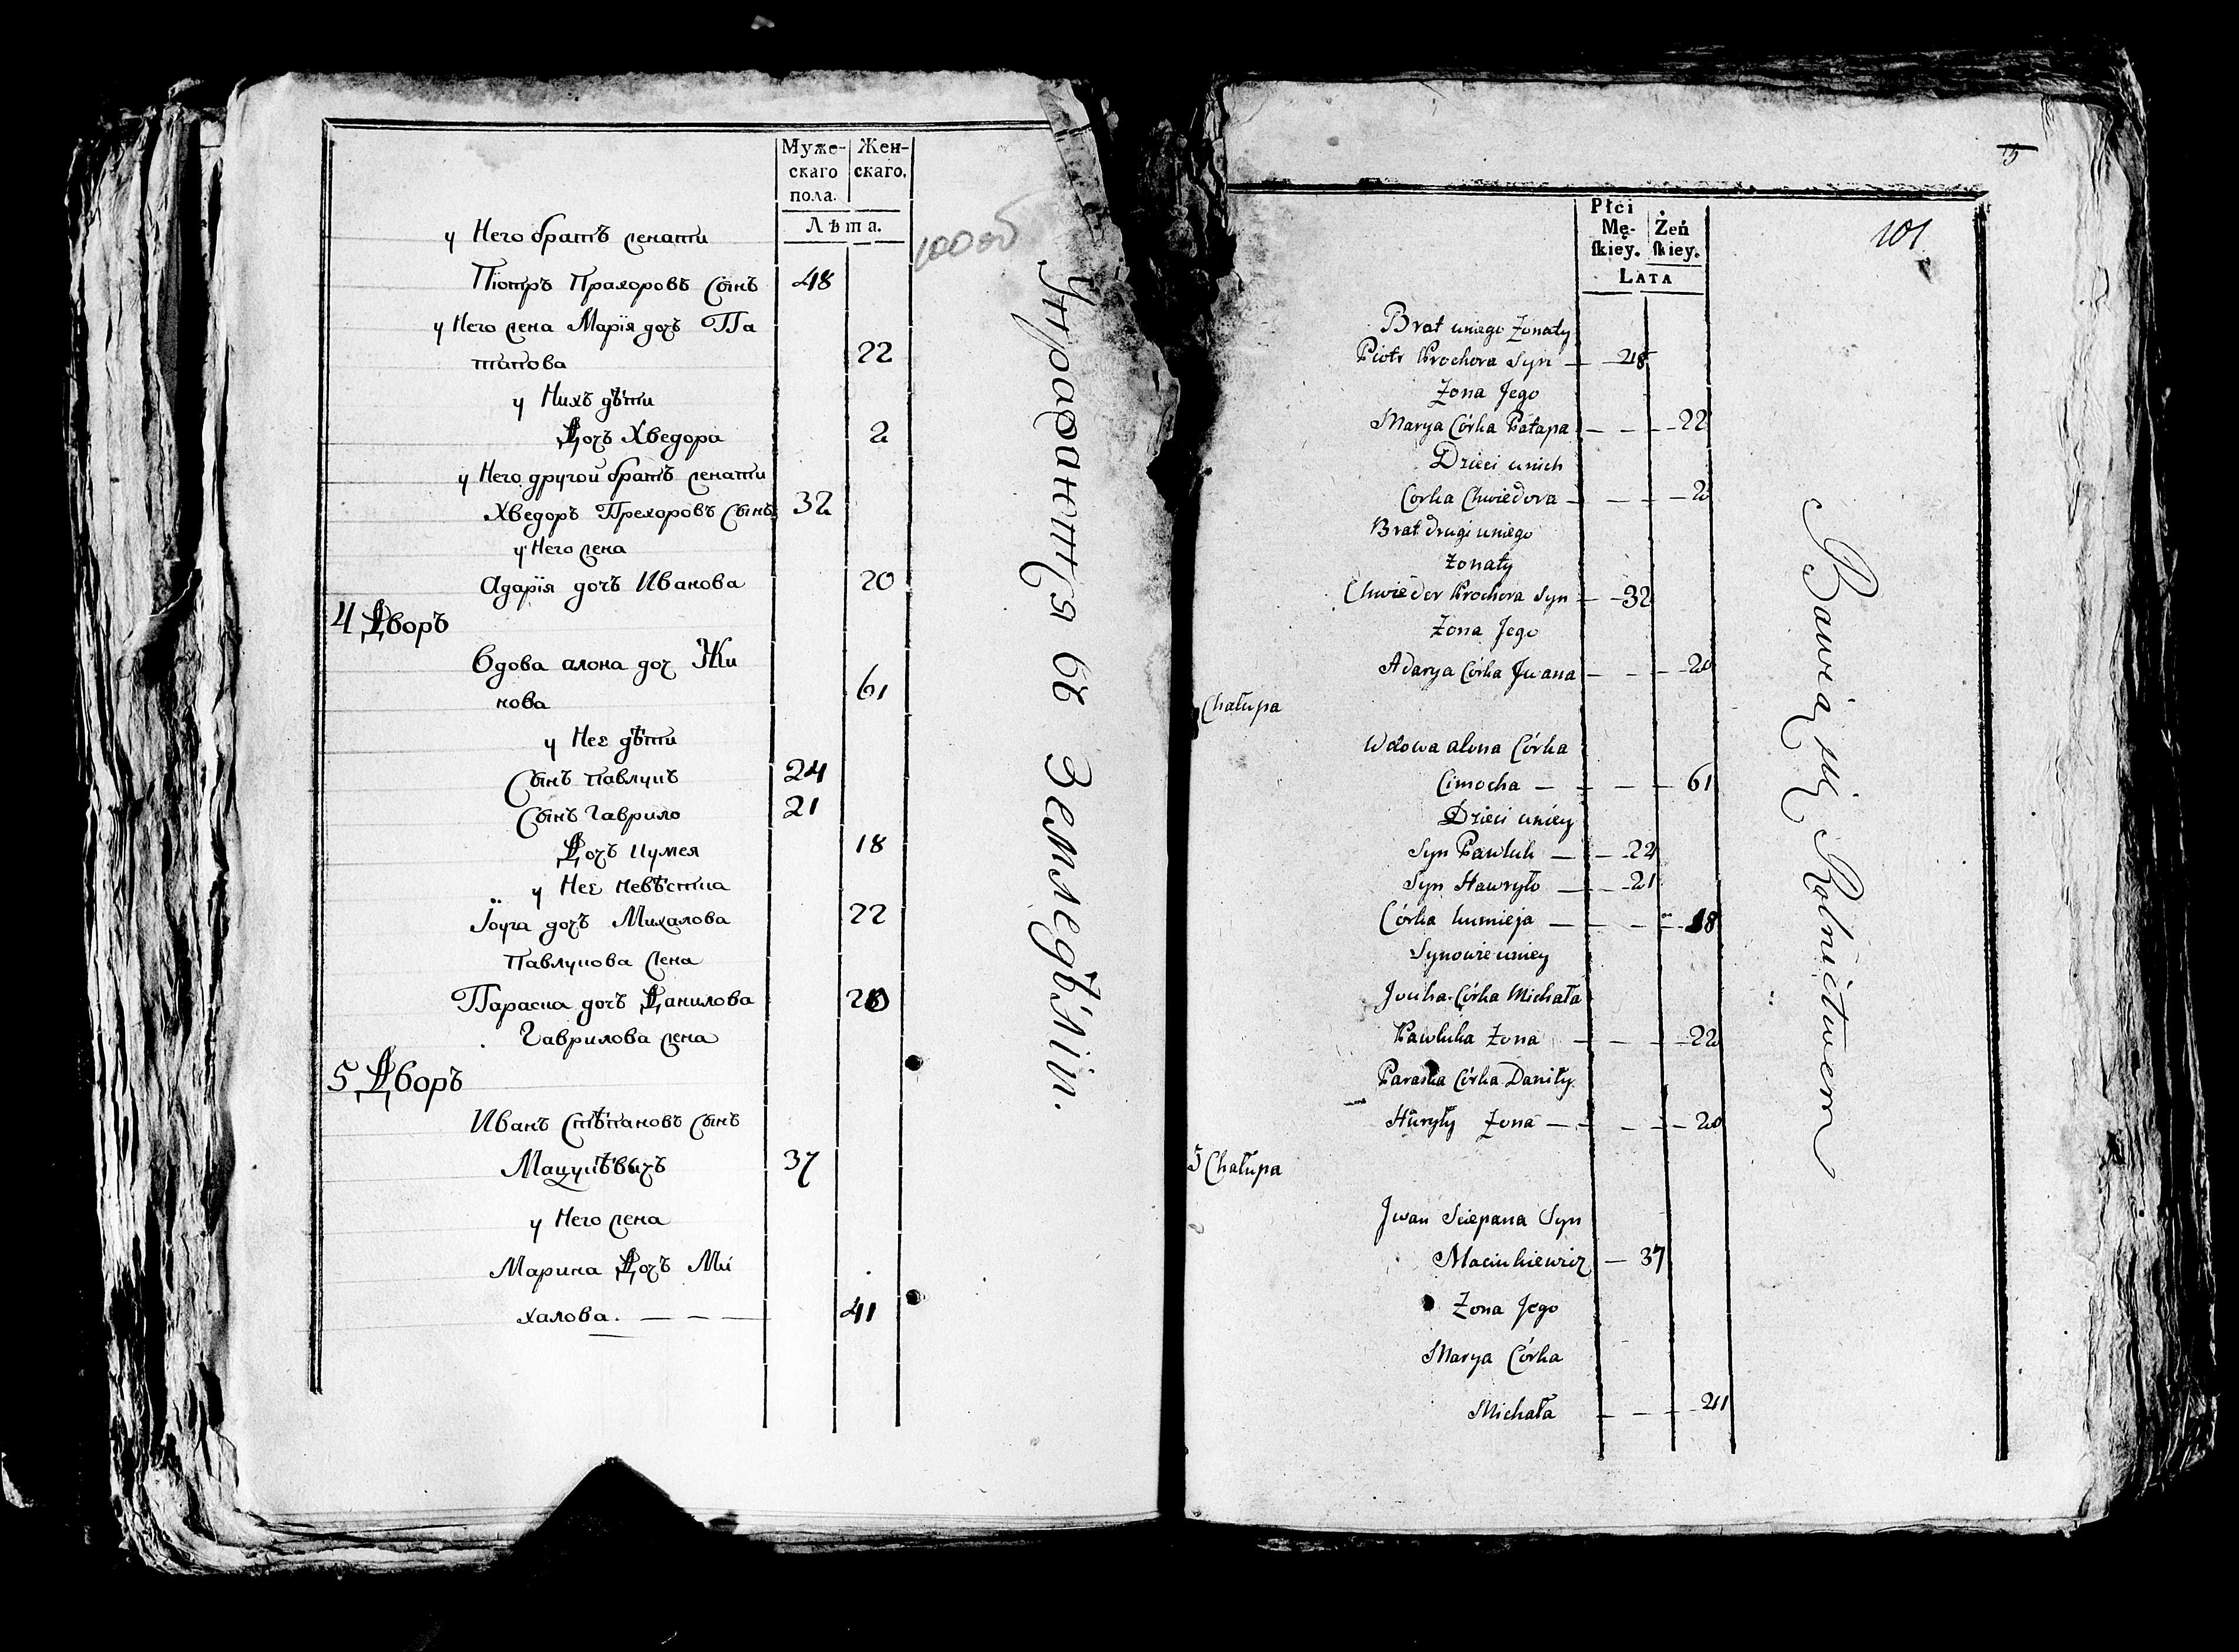 Муже-
скаго
пола.
Жен-
скаго.
Лѣта.
100об
у Него братъ женати
Піотръ Прахоровъ Сынъ 48
у Него жена Марія дочъ Па
тапова 22
у Нихъ дѣти
Дочъ Хведора 2
у Него другой братъ женати
Хведоръ Прехоровъ Сынъ 32
у Него жена
Адарія дочъ Иванова 20
4 Дворъ
Вдова алона доч Жи
нова 61
у Неѣ дѣти
Сынъ Павлукъ 24
Сынъ Гаврило 21
Дочъ Кумея 18
у Неѣ невѣстка
Іоуга дочъ Михалова 22
Павлукова жена
Параска дочъ Данилова 20
Гаврилова жена
5 Дворъ
Иванъ Стѣпановъ Сынъ
Мацукѣвычъ 37
у Него жена
Марина Дочъ Ми
халова. — — — 41
Упражняются въ Земледѣліи.
Płci
Mę-
ſkiey.
Żeń
ſkiey.
LATA
101
Brat uniego Żonaty
Piotr Prochora Syn — 48
Żona Jego
Marya Córka Patapa — — — 22
Dzieci unich
Corka Chwiedora — — — 2
Brat drugi uniego
Żonaty
Chwiedor Prochora Syn — 32
Żona Jego
Adarya Córka Jwana — — — 20
Chałupa
Wdowa alona Córka
Cimocha — — — — 61
Dzieci uniey
Syn Pawluk — — 24
Syn Hawryło — — 21
Córka kumieja — — — — 18
Synowie uniey
Jouha Córka Michała
Pawluka Żona — — — 22
Paraska Córka Daniły
Hawryły Żona — — — — 20
5 Chałupa
Jwan Sciepana Syn
Maciukiewicz — 37
Żona Jego
Marya Córka
Michała — — — 41
Bawią się Rolnictwem